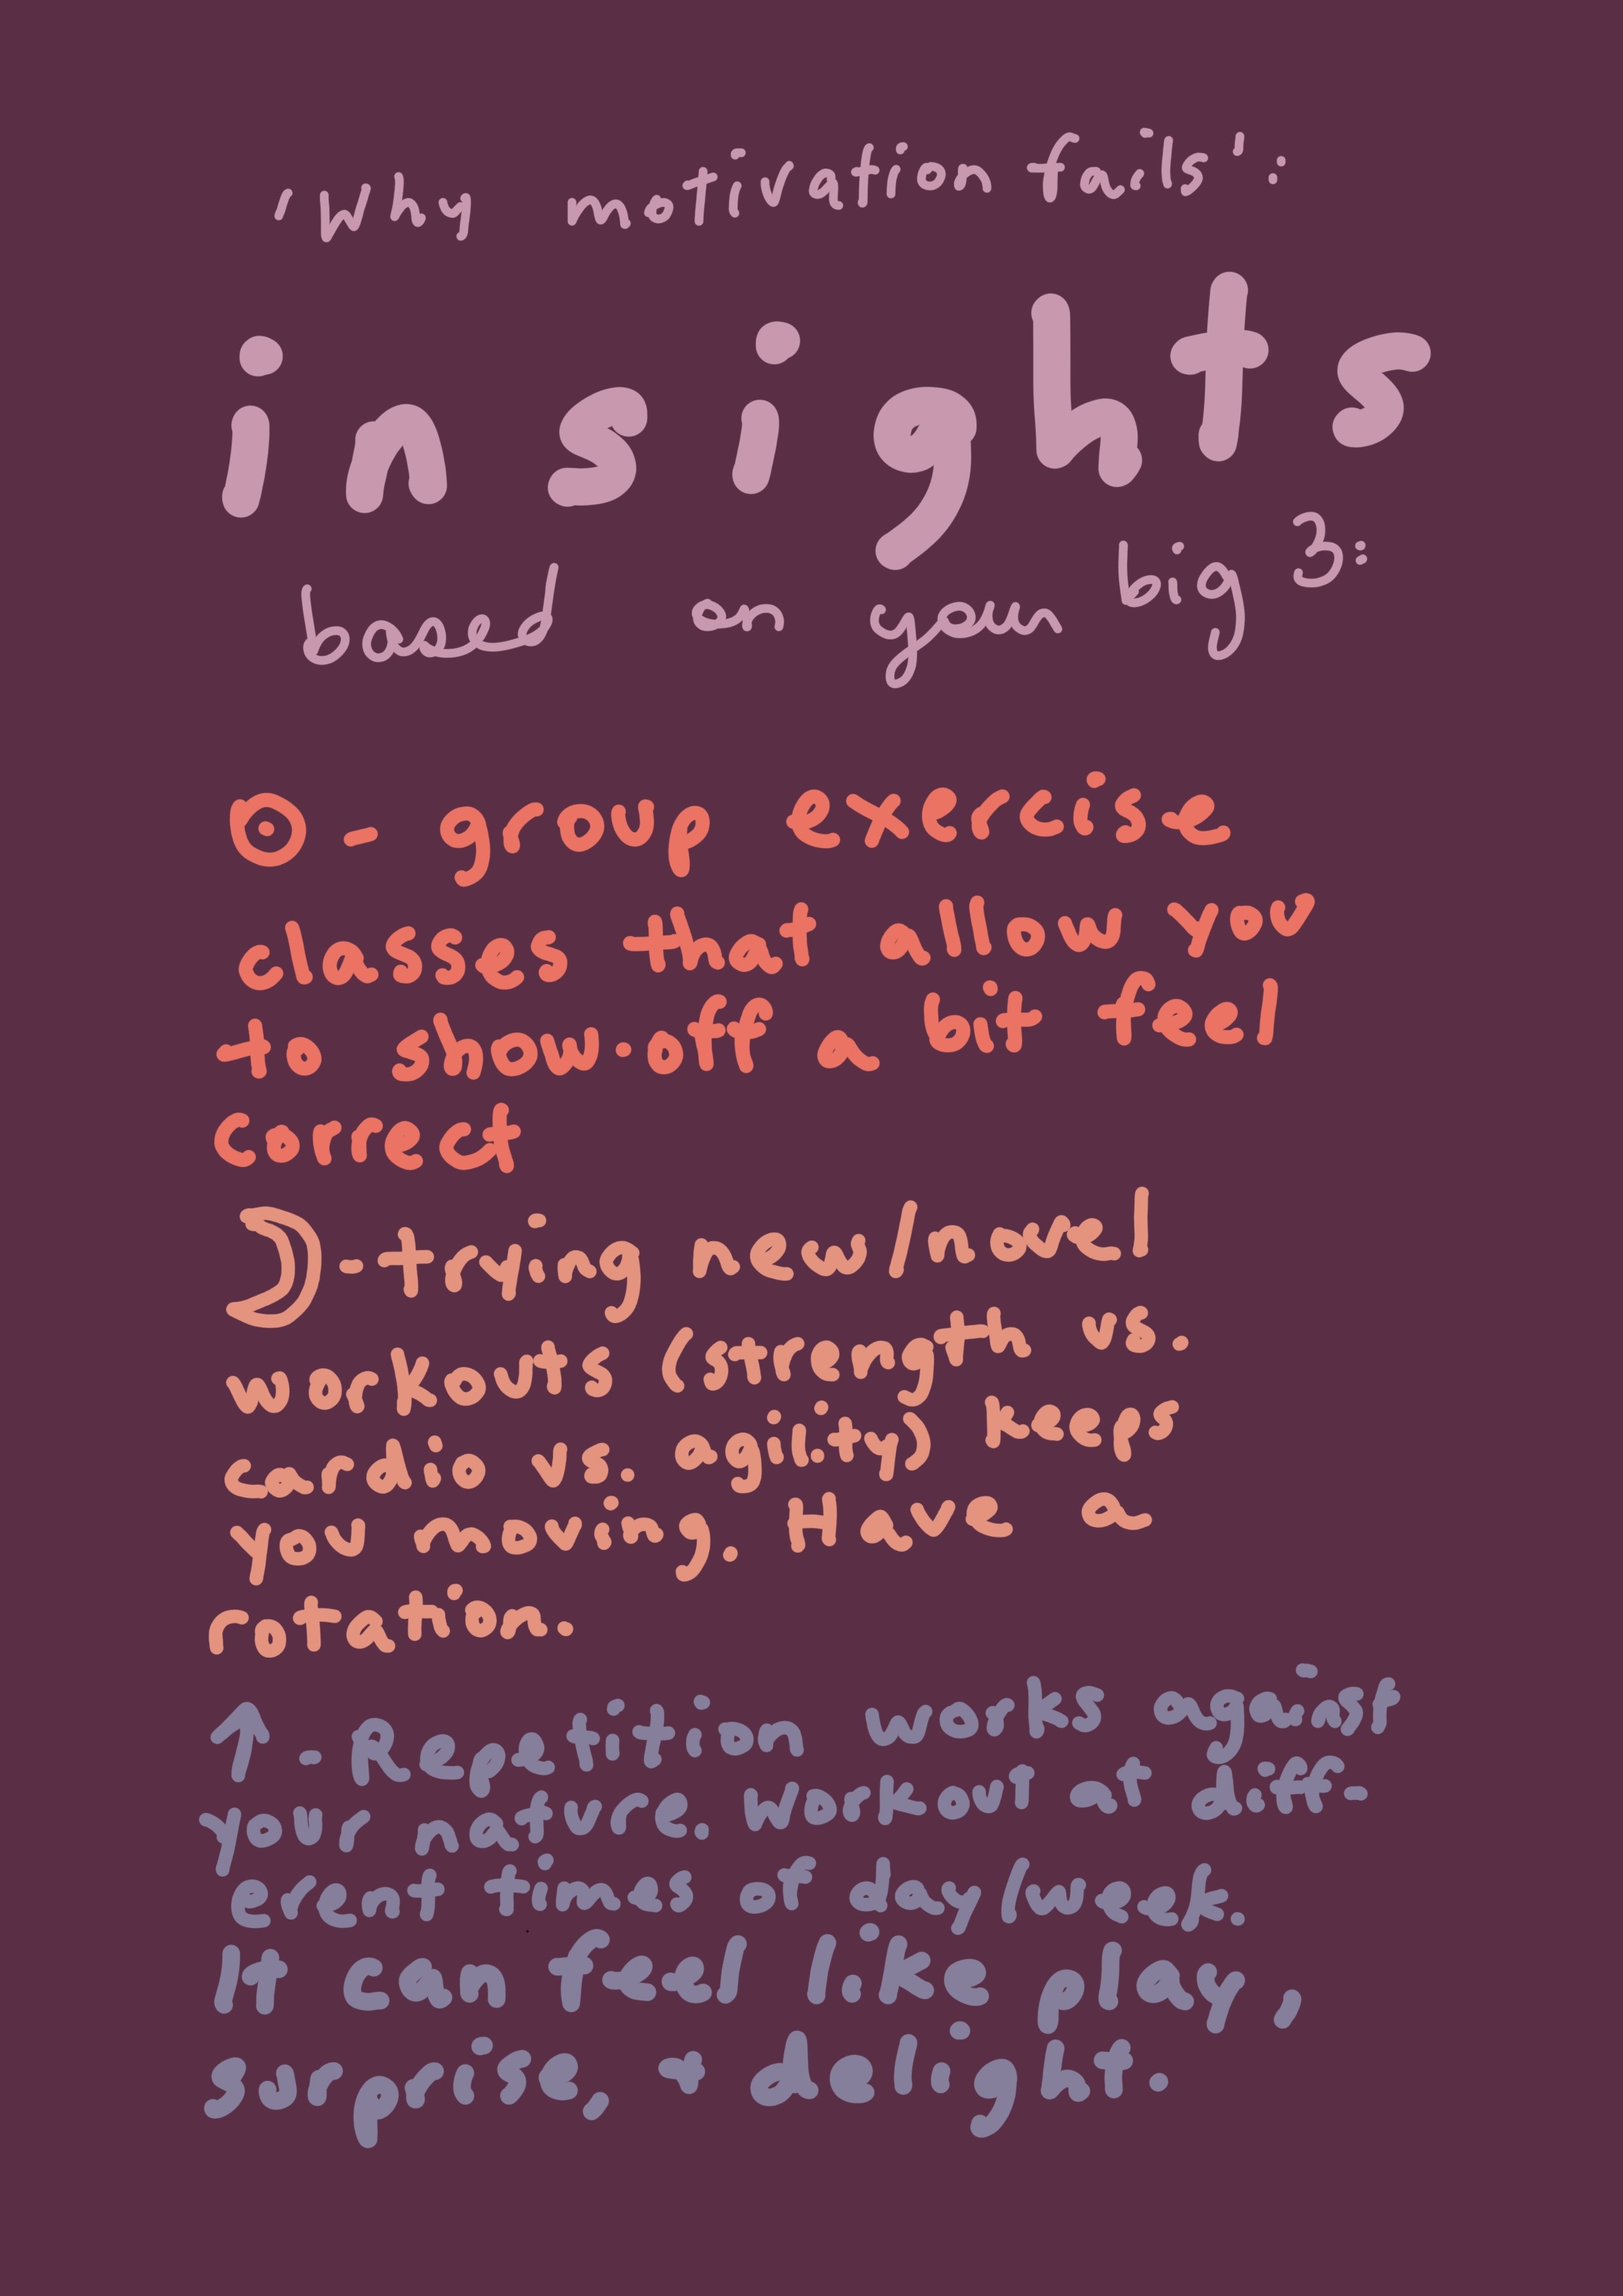 'Why motivation fails':
insights
based on your big 3:
☉ - group exercise
classes that allow you
to show-off a bit feel
correct
☽ - trying new/novel
workouts (strength vs.
cardio vs. agility) keeps
you moving. Have a
rotation.
↑ - Repetition works against
your nature. Workout at diff-
erent times of day/week.
It can feel like play,
surprise, + delight.